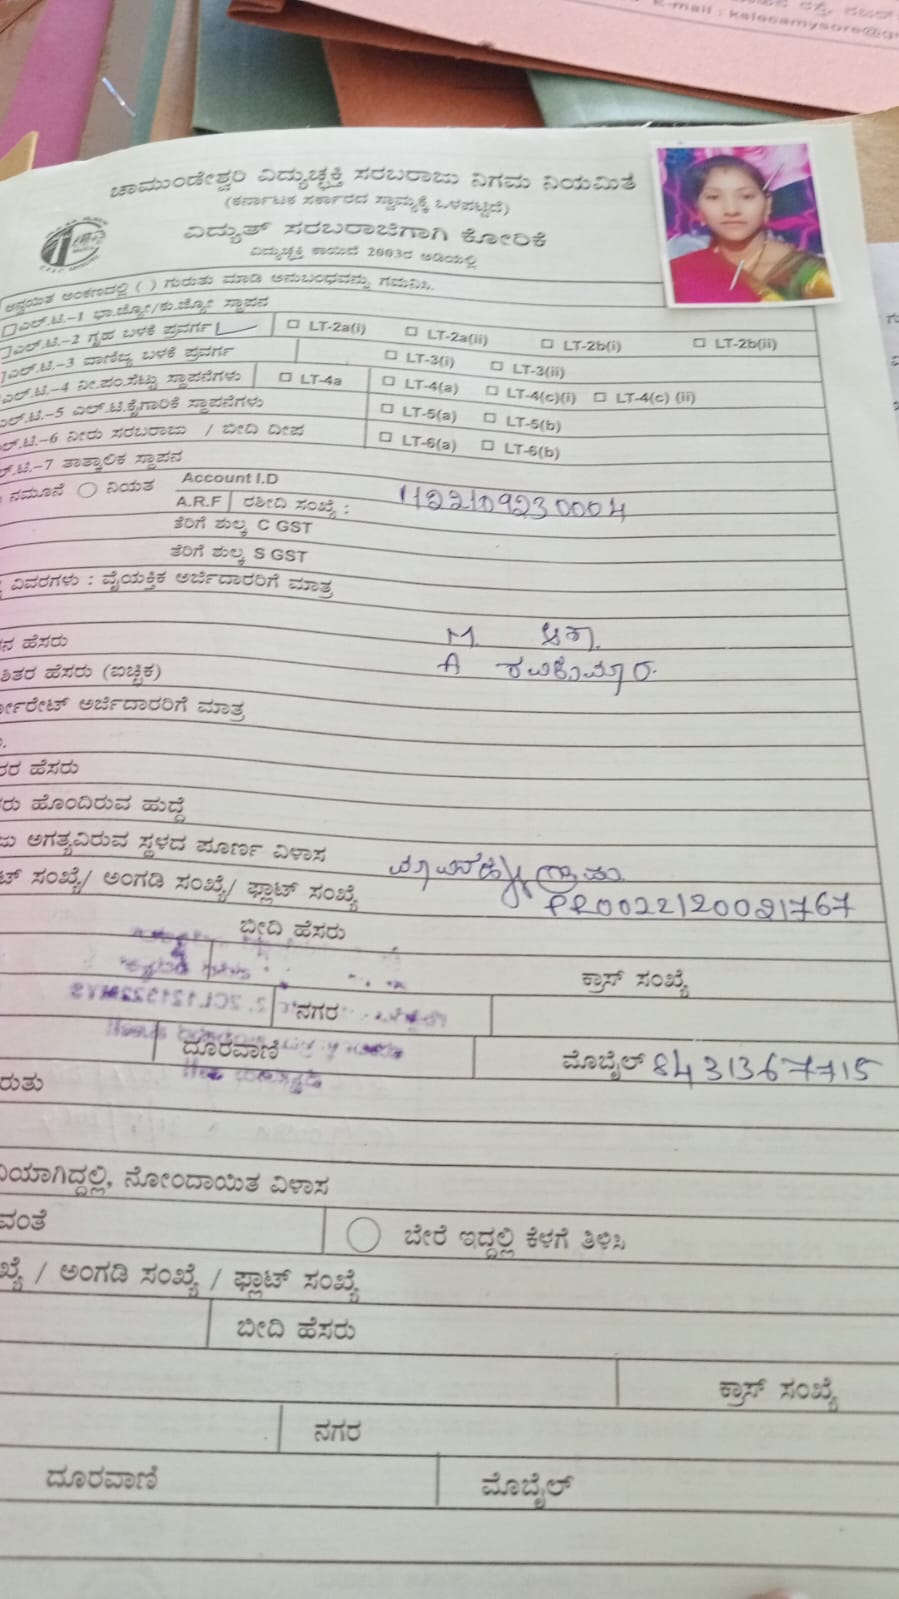 E-mail : kalacamysore@g
ಚಾಮುಂಡೇಶ್ವರಿ ವಿದ್ಯುಚ್ಛಕ್ತಿ ಸರಬರಾಜು ನಿಗಮ ನಿಯಮಿತ
(ಕರ್ನಾಟಕ ಸರ್ಕಾರದ ಸ್ವಾಮ್ಯಕ್ಕೆ ಒಳಪಟ್ಟಿದೆ)
ವಿದ್ಯುತ್ ಸರಬರಾಜಿಗಾಗಿ ಕೋರಿಕೆ
ವಿದ್ಯುಚ್ಛಕ್ತಿ ಕಾಯಿದೆ 2003ರ ಅಡಿಯಲ್ಲಿ
ಅನ್ವಯಿತ ಅಂಕಣದಲ್ಲಿ ( ) ಗುರುತು ಮಾಡಿ ಅನುಬಂಧವನ್ನು ಗಮನಿಸಿ.
ಎಲ್.ಟಿ.–1 ಭಾ.ಜ್ಯೋ/ಕು.ಜ್ಯೋ ಸ್ಥಾಪನ
ಎಲ್.ಟಿ.–2 ಗೃಹ ಬಳಕೆ ಪ್ರವರ್ಗ LT-2a(i) LT-2a(ii) LT-2b(i) LT-2b(ii)
ಎಲ್.ಟಿ.–3 ವಾಣಿಜ್ಯ ಬಳಕೆ ಪ್ರವರ್ಗ LT-3(i) LT-3(ii)
ಎಲ್.ಟಿ.–4 ನೀ.ಪಂ.ಸೆಟ್ಟು ಸ್ಥಾಪನೆಗಳು LT-4a LT-4(a) LT-4(c)(i) LT-4(c) (ii)
ಎಲ್.ಟಿ.–5 ಎಲ್.ಟಿ.ಕೈಗಾರಿಕೆ ಸ್ಥಾಪನೆಗಳು LT-5(a) LT-5(b)
ಲ್.ಟಿ.–6 ನೀರು ಸರಬರಾಜು / ಬೀದಿ ದೀಪ LT-6(a) LT-6(b)
ಲ್.ಟಿ.–7 ತಾತ್ಕಾಲಿಕ ಸ್ಥಾಪನ
ನಮೂನೆ ನಿಯತ Account I.D
A.R.F ರಶೀದಿ ಸಂಖ್ಯೆ : 1122109230004
ತೆರಿಗೆ ಶುಲ್ಕ C GST
ತೆರಿಗೆ ಶುಲ್ಕ S GST
ವಿವರಗಳು : ವೈಯಕ್ತಿಕ ಅರ್ಜಿದಾರರಿಗೆ ಮಾತ್ರ
ನ ಹೆಸರು M. ಆಶಾ.
ತರ ಹೆಸರು (ಐಚ್ಛಿಕ) A ರವಿಕುಮಾರ.
ರ್ಪೊರೇಟ್ ಅರ್ಜಿದಾರರಿಗೆ ಮಾತ್ರ
ರರ ಹೆಸರು
ರು ಹೊಂದಿರುವ ಹುದ್ದೆ
ು ಅಗತ್ಯವಿರುವ ಸ್ಥಳದ ಪೂರ್ಣ ವಿಳಾಸ
ಟ್ ಸಂಖ್ಯೆ/ ಅಂಗಡಿ ಸಂಖ್ಯೆ/ ಫ್ಲಾಟ್ ಸಂಖ್ಯೆ PR0022120021767
ಬೀದಿ ಹೆಸರು
ಕ್ರಾಸ್ ಸಂಖ್ಯೆ
ನಗರ
ದೂರವಾಣಿ ಮೊಬೈಲ್ 8431367715
ರುತು
ಿಯಾಗಿದ್ದಲ್ಲಿ, ನೋಂದಾಯಿತ ವಿಳಾಸ
ವಂತೆ ಬೇರೆ ಇದ್ದಲ್ಲಿ ಕೆಳಗೆ ತಿಳಿಸಿ
ಖ್ಯೆ / ಅಂಗಡಿ ಸಂಖ್ಯೆ / ಫ್ಲಾಟ್ ಸಂಖ್ಯೆ
ಬೀದಿ ಹೆಸರು
ಕ್ರಾಸ್ ಸಂಖ್ಯೆ
ನಗರ
ದೂರವಾಣಿ ಮೊಬೈಲ್